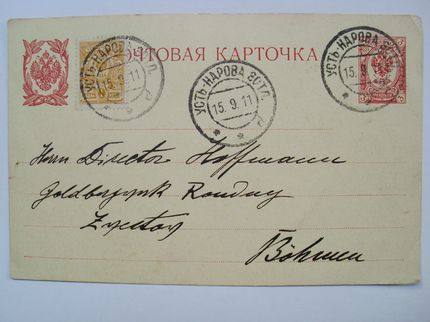 ПОЧТОВАЯ КАРТОЧКА
УСТЬ-НАРОВА ЭСТЛ.
15.9.11
УСТЬ-НАРОВА ЭСТЛ.
15.9.11
УСТЬ-НАРОВА ЭСТЛ.
15.9.11
Herrn Director Hoffmann
Goldbergwerk Roudny
Zvestov
Böhmen